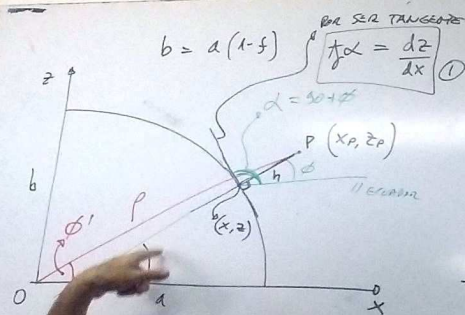 POR SER TANGENTE
b = a (1-f)
tg α = dz/dx ①
z
α = 90+ϕ
P (xp, zp)
ϕ
h
// ECUADOR
b
ρ
(x,z)
ϕ'
O
a
x